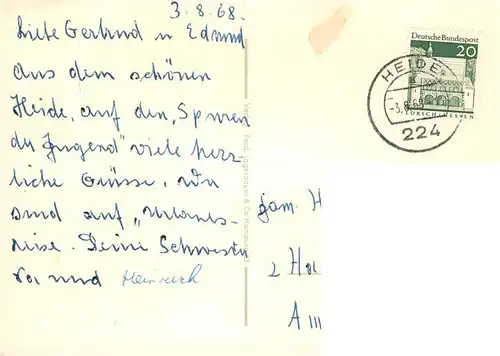 3.8.68.
Liebe Gertrud u Edmund
Aus dem schönen
Heide, auf den „Spuren
der Jugend" viele herz-
liche Grüsse, wir
sind auf „Urlaubs-
reise. Deine Schwester
und Heinrich
Deutsche Bundespost
20
LORSCH/HESSEN
HEIDE
-3.8.68
224
Fam. H
2 H
A